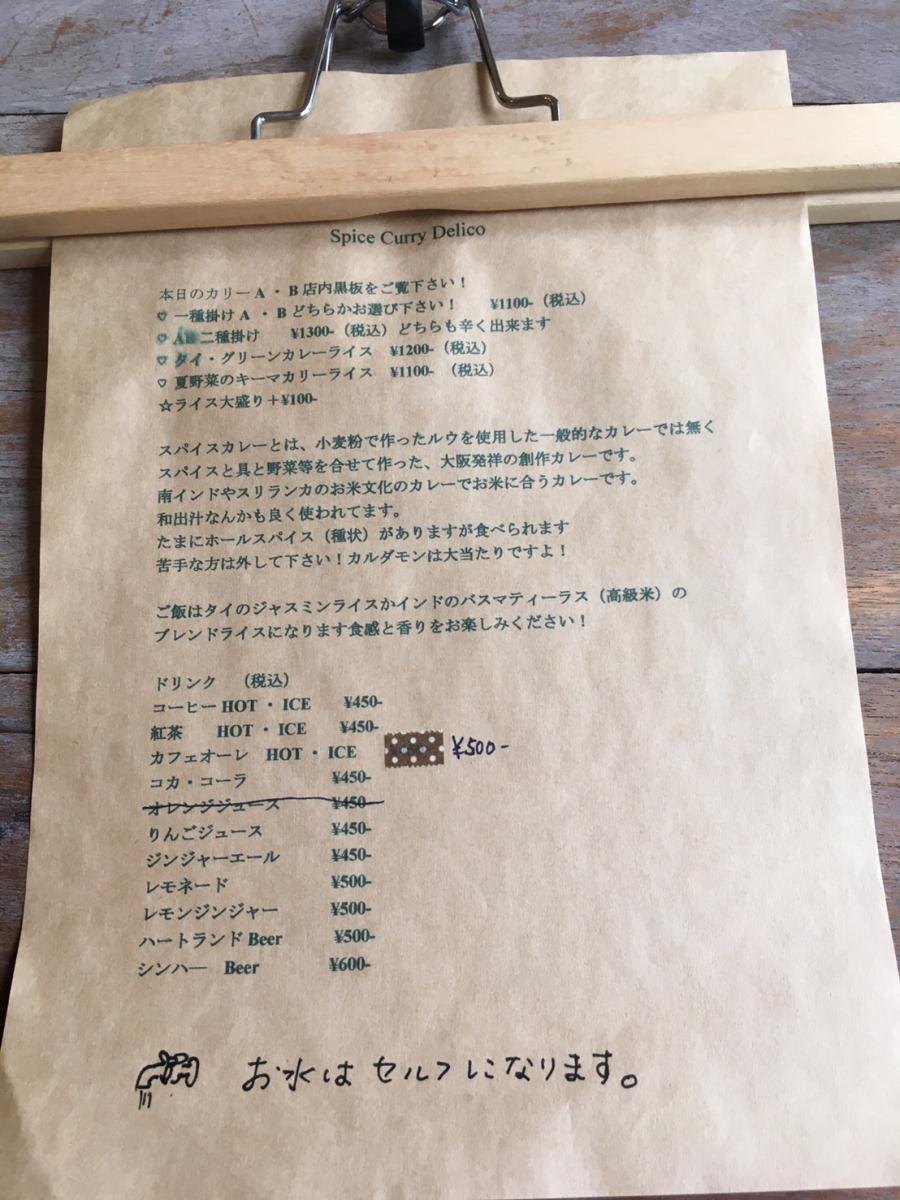 Spice Curry Delico
本日のカリー A ・ B 店内黒板をご覧下さい！
♡ 一種掛け A ・ B どちらかお選び下さい！ ¥1100-（税込）
♡ AB 二種掛け ¥1300-（税込）どちらも辛く出来ます
♡ タイ・グリーンカレーライス ¥1200-（税込）
♡ 夏野菜のキーマカリーライス ¥1100- （税込）
☆ライス大盛り＋¥100-
スパイスカレーとは、小麦粉で作ったルウを使用した一般的なカレーでは無く
スパイスと具と野菜等を合せて作った、大阪発祥の創作カレーです。
南インドやスリランカのお米文化のカレーでお米に合うカレーです。
和出汁なんかも良く使われてます。
たまにホールスパイス（種状）がありますが食べられます
苦手な方は外して下さい！カルダモンは大当たりですよ！
ご飯はタイのジャスミンライスかインドのバスマティーラス（高級米）の
ブレンドライスになります食感と香りをお楽しみください！
ドリンク （税込）
コーヒー HOT ・ ICE ¥450-
紅茶 HOT ・ ICE ¥450-
カフェオーレ HOT ・ ICE ¥500-
コカ・コーラ ¥450-
オレンジジュース ¥450-
りんごジュース ¥450-
ジンジャーエール ¥450-
レモネード ¥500-
レモンジンジャー ¥500-
ハートランド Beer ¥500-
シンハ― Beer ¥600-
お水は セルフになります。